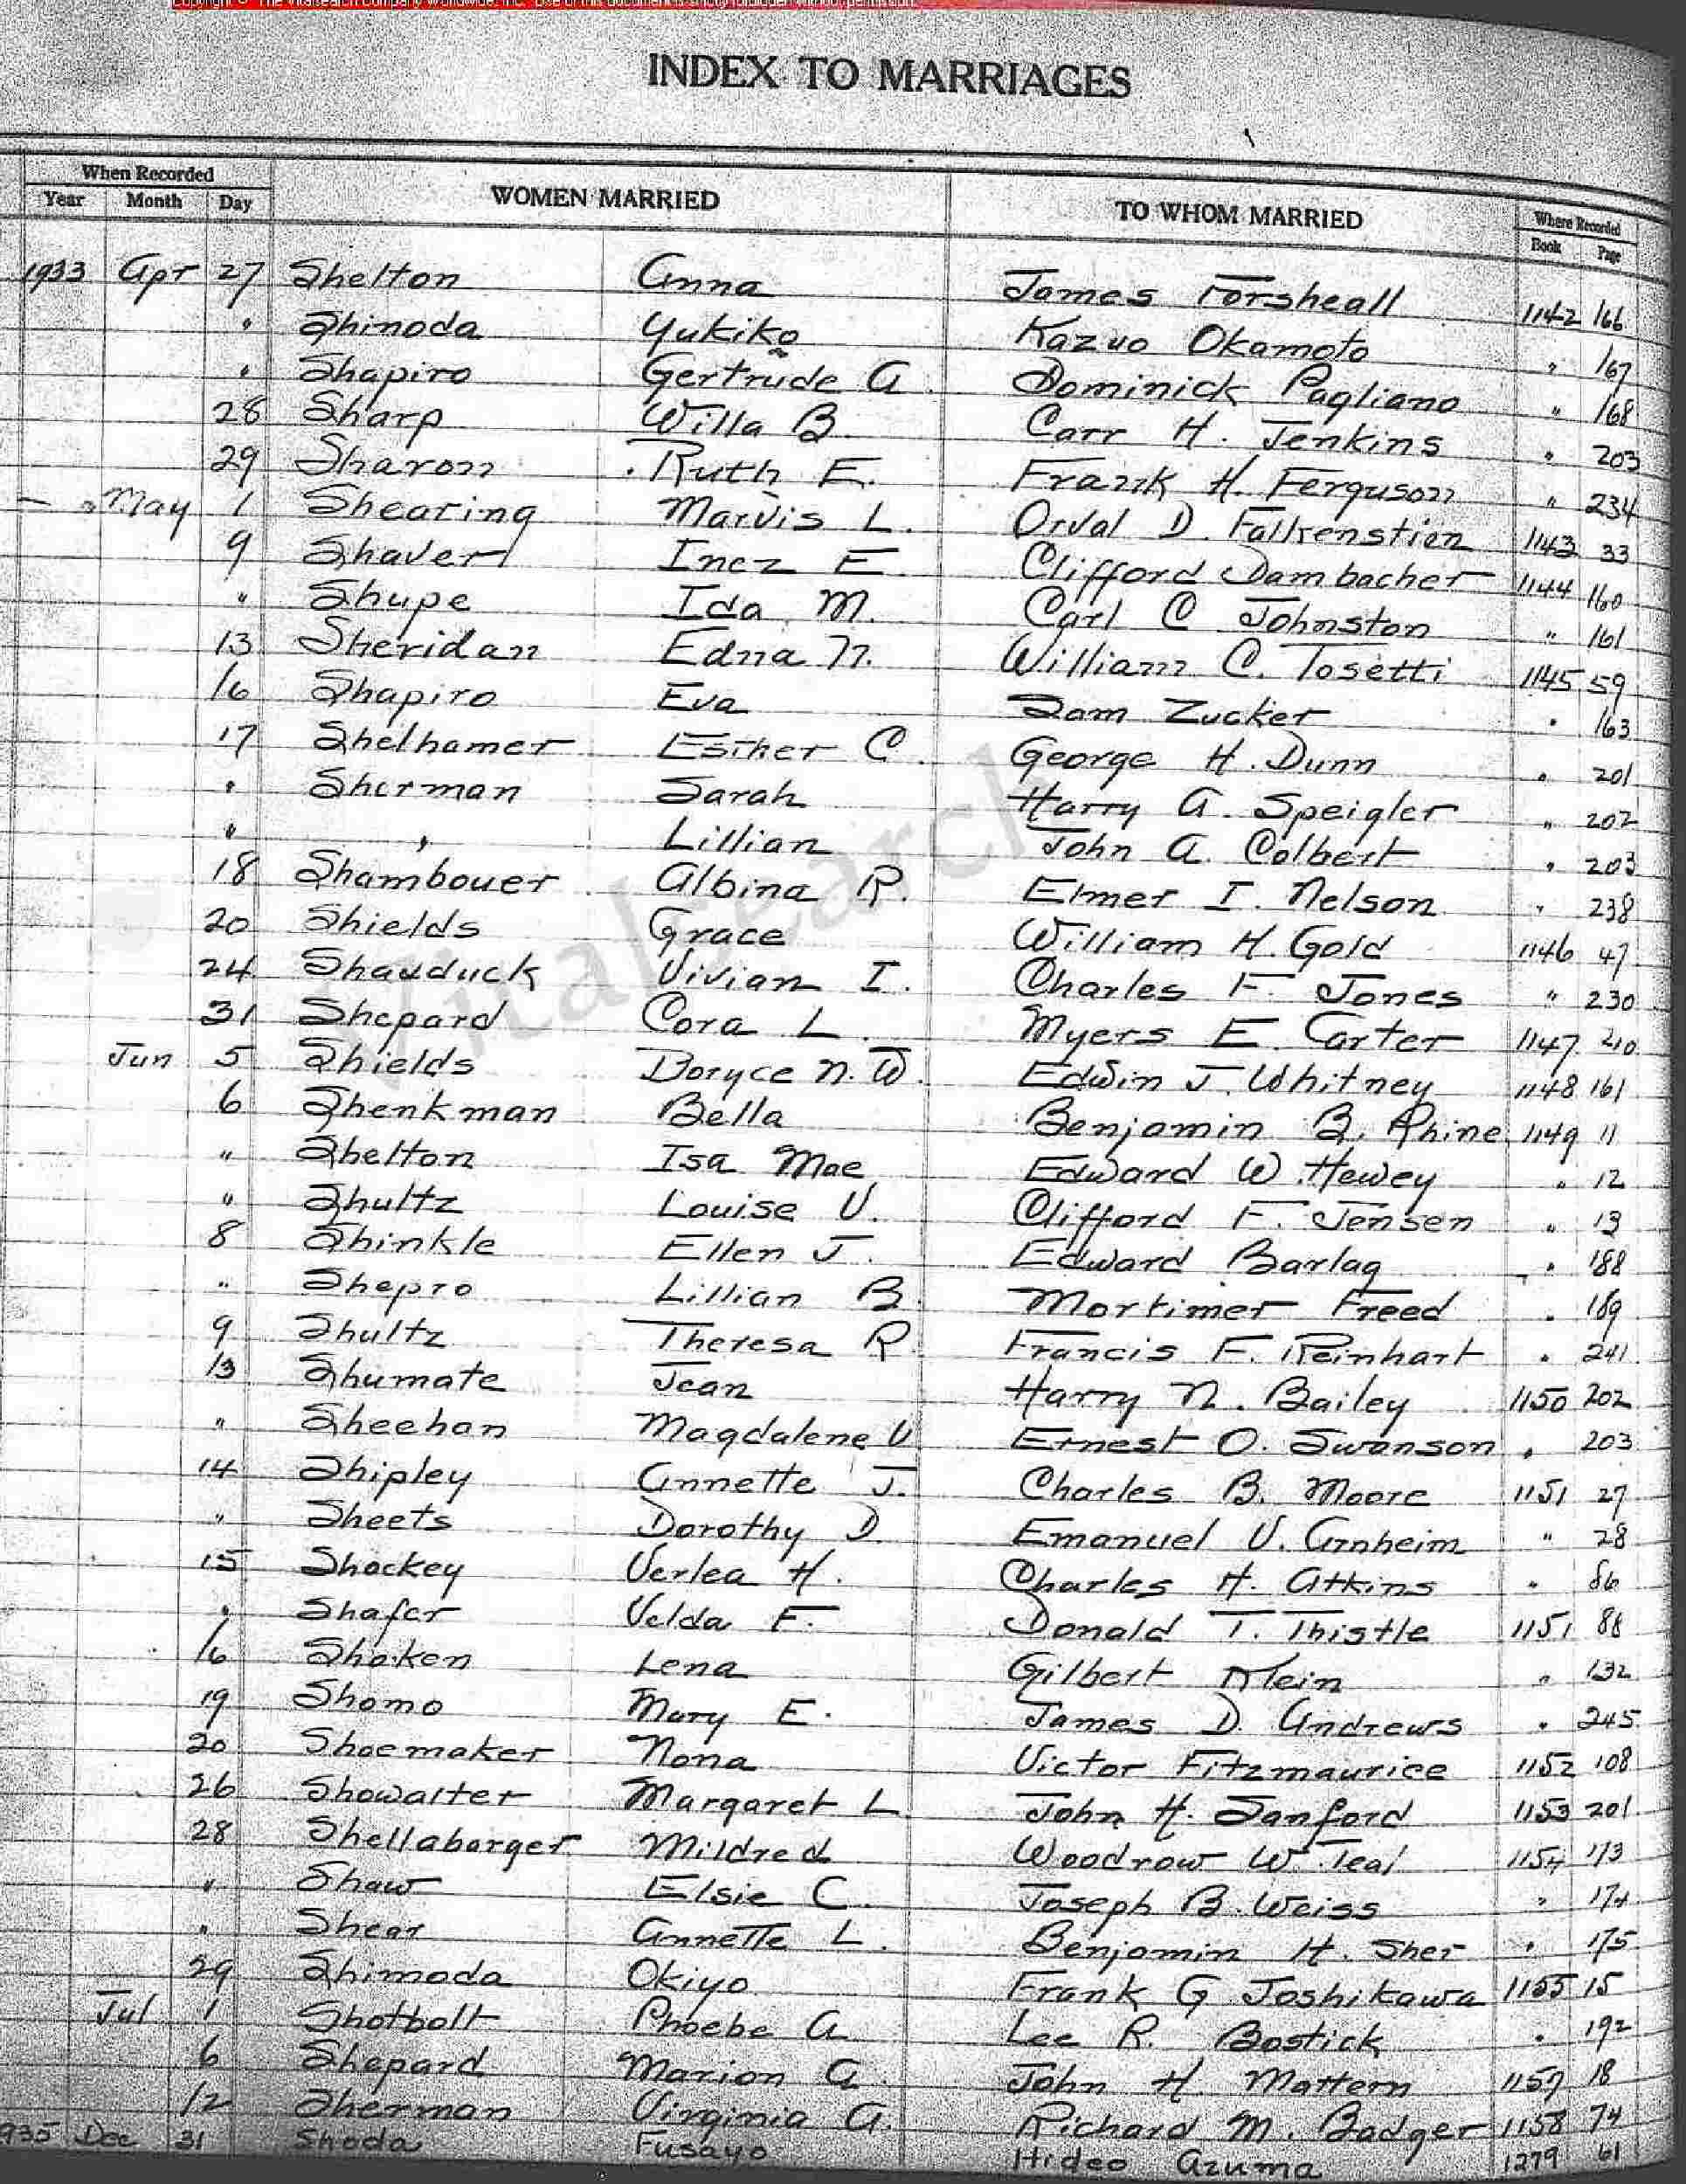 Copyright © The VitalSearch Company Worldwide, Inc. Use of this document is strictly forbidden without permission.
INDEX TO MARRIAGES
When Recorded WOMEN MARRIED TO WHOM MARRIED Where Recorded
Year Month Day Book Page
1933 Apr 27 Shelton Anna James Forsheall 1142 166
" Shinoda Yukiko Kazuo Okamoto " 167
" Shapiro Gertrude A Dominick Pagliano " 168
28 Sharp Willa B. Carr H. Jenkins " 203
29 Sharon Ruth E. Frank H. Ferguson " 234
— " May 1 Shearing Marvis L. Orval D. Falkenstien 1143 33
9 Shaver Inez E Clifford Dambacher 1144 160
" Shupe Ida M. Carl C Johnston " 161
13 Sheridan Edna N. William C. Tosetti 1145 59
16 Shapiro Eva Sam Zucker " 163
17 Shelhamer Esther C. George H. Dunn " 201
" Sherman Sarah Harry A. Speigler " 202
" " Lillian John A. Colbert " 203
18 Shambouer Albina R. Elmer I. Nelson " 238
20 Shields Grace William H. Gold 1146 47
24 Shadduck Vivian I. Charles F. Jones " 230
31 Shepard Cora L. Myers E. Carter 1147 210
Jun 5 Shields Doryce N. W. Edwin J. Whitney 1148 161
6 Shenkman Bella Benjamin B. Rhine 1149 11
" Shelton Isa Mae Edward W. Hewey " 12
" Shultz Louise V. Clifford F. Jensen " 13
8 Shinkle Ellen J. Edward Barlag " 188
" Shepro Lillian B. Mortimer Freed " 189
9 Shultz Theresa R. Francis F. Reinhart " 241
13 Shumate Jean Harry N. Bailey 1150 202
" Sheehan Magdalene V Ernest O. Swanson " 203
14 Shipley Annette J. Charles B. Moore 1151 27
" Sheets Dorothy D. Emanuel V. Arnheim " 28
15 Shockey Verlea H. Charles H. Atkins " 86
" Shafer Velda F. Donald T. Thistle 1151 88
16 Shaken Lena Gilbert Klein " 132
19 Shomo Mary E. James D. Andrews " 245
20 Shoemaker Nona Victor Fitzmaurice 1152 108
26 Showalter Margaret L. John H. Sanford 1153 201
28 Shellabarger Mildred Woodrow W. Teal 1154 173
" Shaw Elsie C. Joseph B. Weiss " 174
" Shear Annette L. Benjamin H. Sher " 175
29 Shimoda Okiyo Frank G Joshikawa 1155 15
Jul 1 Shotbolt Phoebe A Lee R. Bostick " 192
6 Shepard Marion A. John H. Mattern 1157 18
12 Sherman Virginia A. Richard M. Badger 1158 74
935 Dec 31 Shoda Fusayo Hideo Azuma 1279 61
Vitalsearch